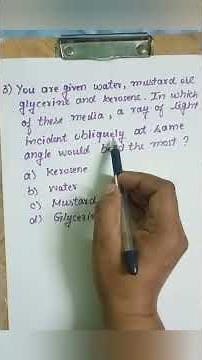 3) You are given water, mustard oil
glycerine and kerosene. In which
of these media, a ray of light
incident obliquely at same
angle would the most ?
a) Kerosene
b) Water
c) Mustard
d)